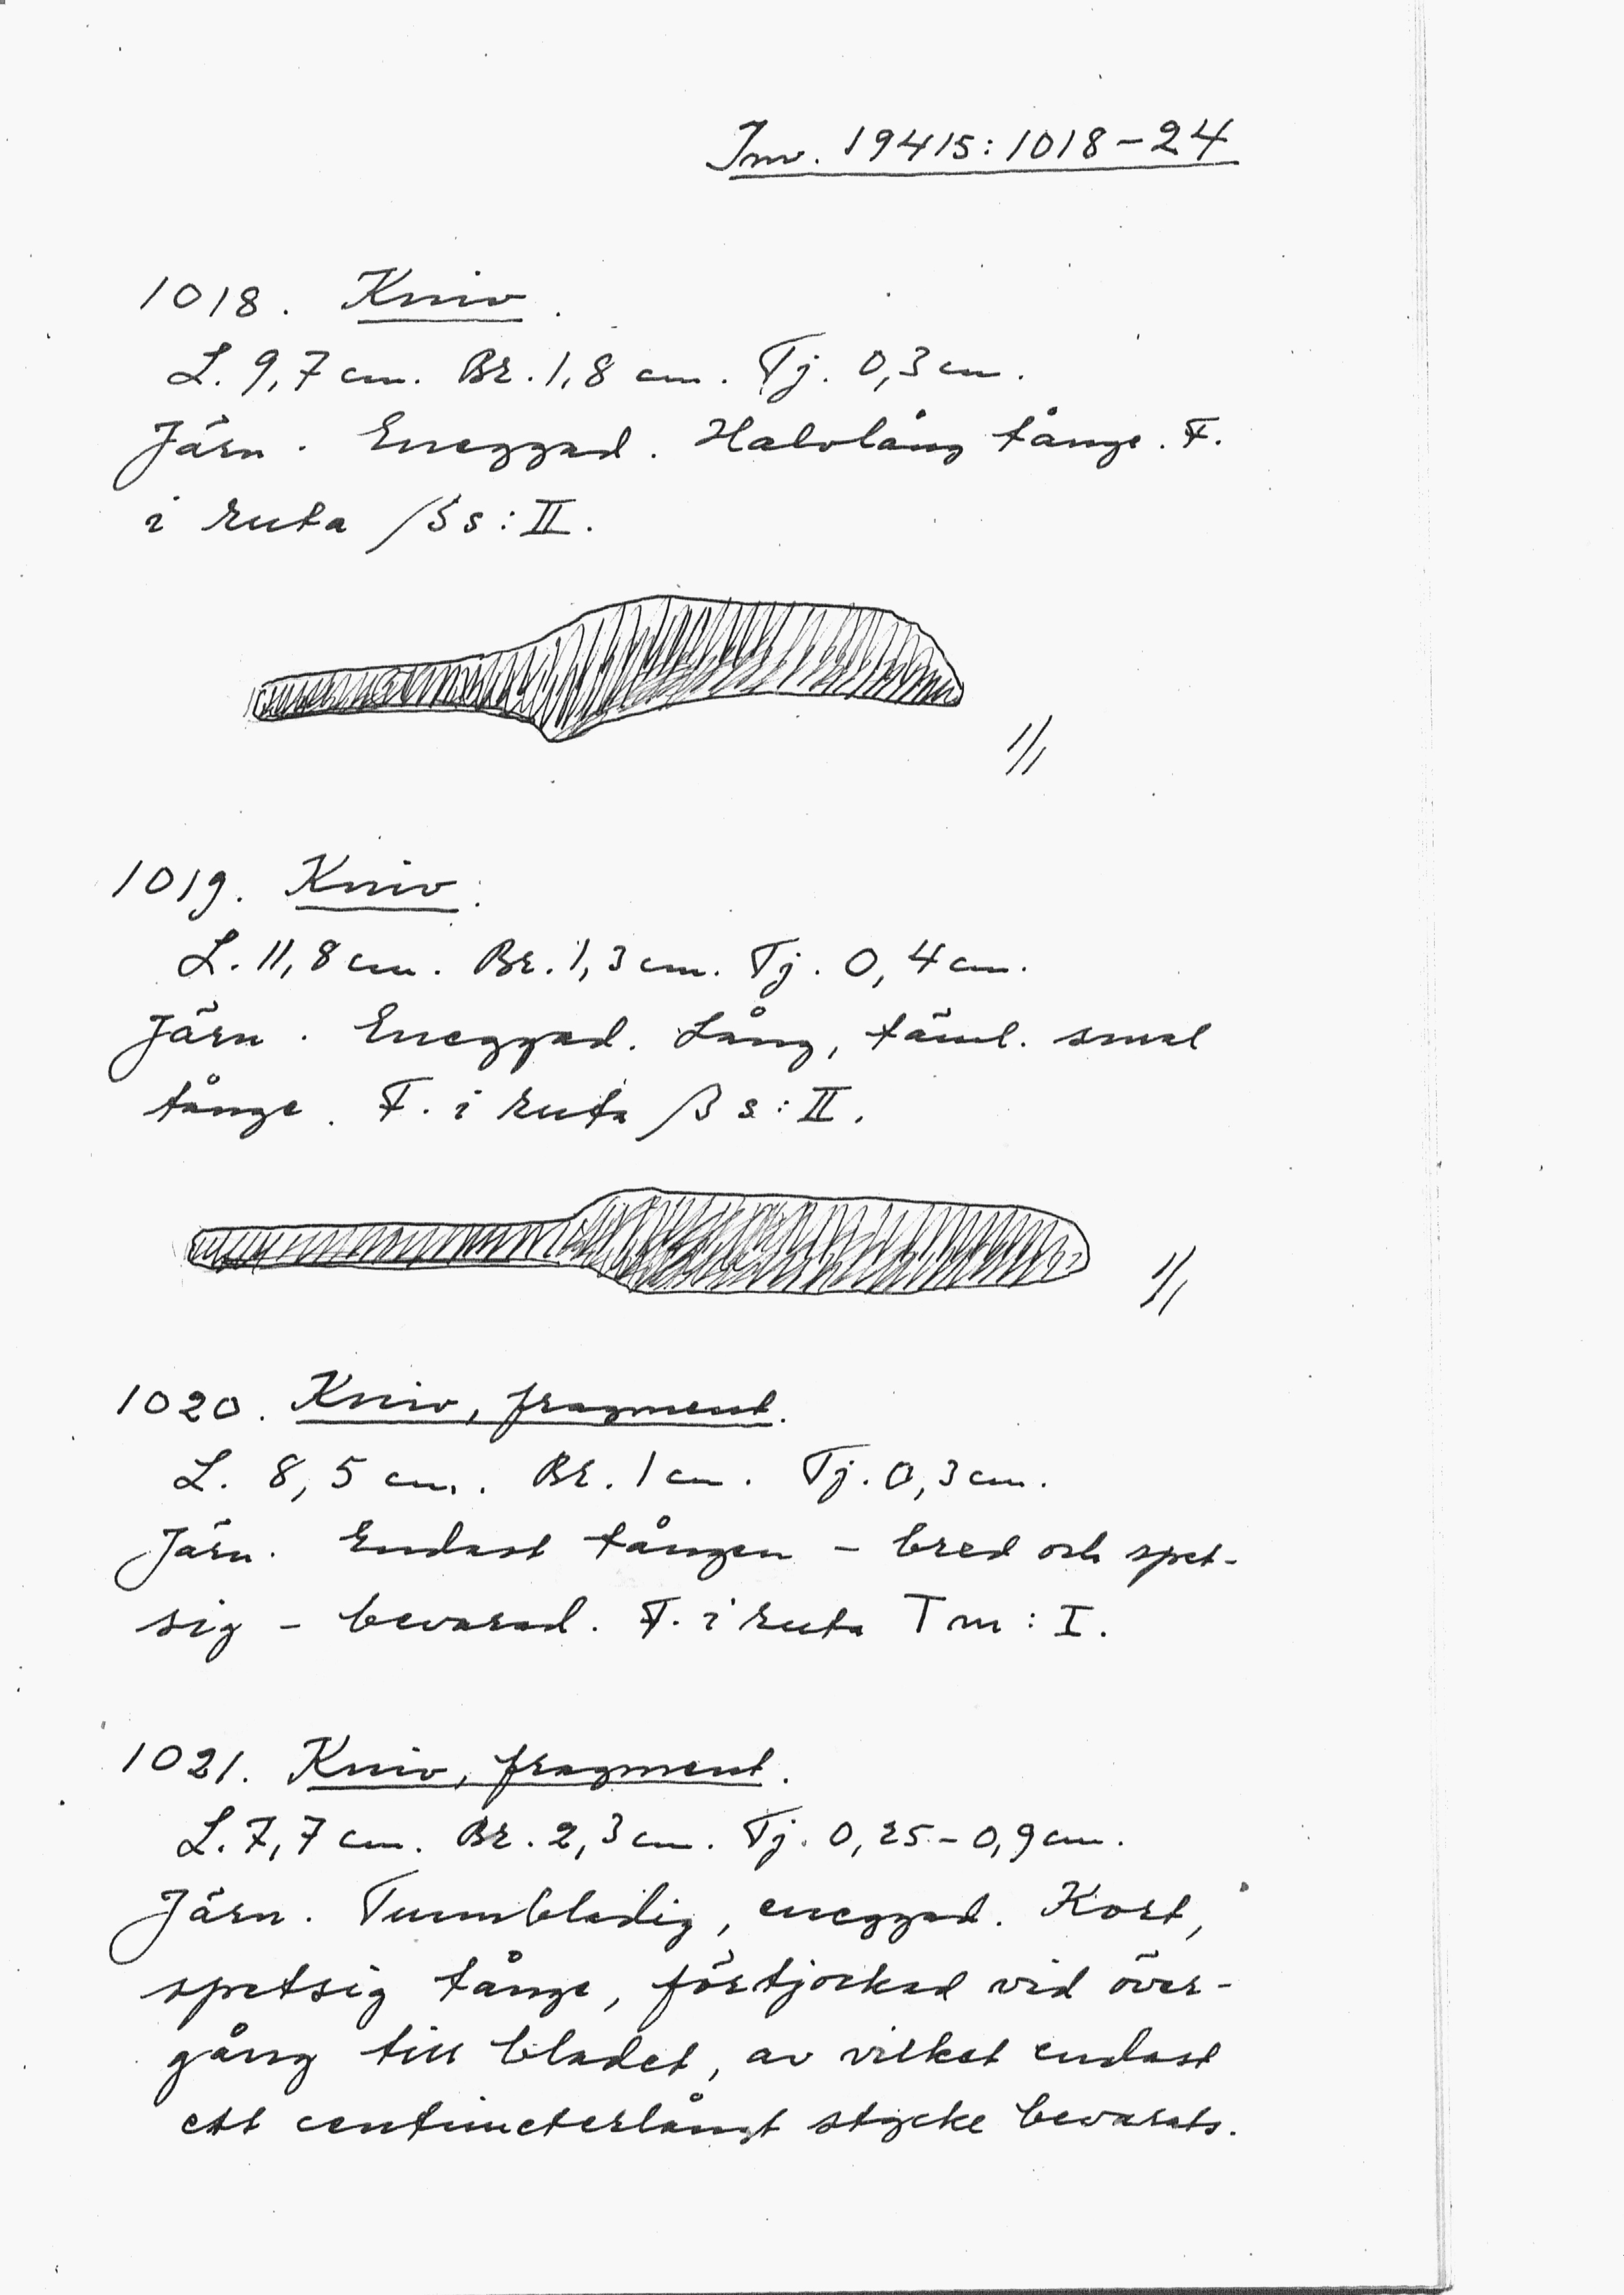 Inv. 19415:1018-24
1018. Kniv.
L. 9,7 cm. Br. 1,8 cm. Tj. 0,3 cm.
Järn. Eneggad. Halvlång tånge. F.
i ruta βs:II.
1/1
1019. Kniv.
L. 11,8 cm. Br. 1,3 cm. Tj. 0,4 cm.
Järn. Eneggad. Lång, täml. smal
tånge. F. i ruta βs:II.
1/1
1020. Kniv, fragment.
L. 8,5 cm. Br. 1 cm. Tj. 0,3 cm.
Järn. Endast tången – bred och spet-
sig – bevarad. F. i ruta Tm:I.
1021. Kniv, fragment.
L. 7,7 cm. Br. 2,3 cm. Tj. 0,25-0,9 cm.
Järn. Tunnbladig, eneggad. Kort,
spetsig tånge, förtjockad vid över-
gång till bladet, av vilket endast
ett centimeterlångt stycke bevarats.